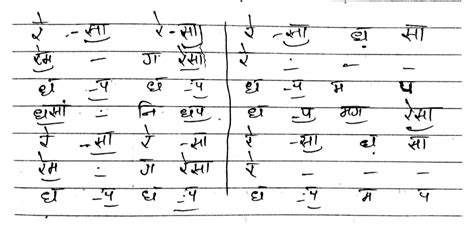 रे -सा रे -सा | रे -सा ध़ सा
रेम - ग रेसा | रे - - -
ध -प ध -प | ध -प म प
धसां - नि धप | ध -प मग रेसा
रे -सा रे -सा | रे -सा ध़ सा
रेम - ग रेसा | रे - - -
ध -प ध -प | ध -प म प